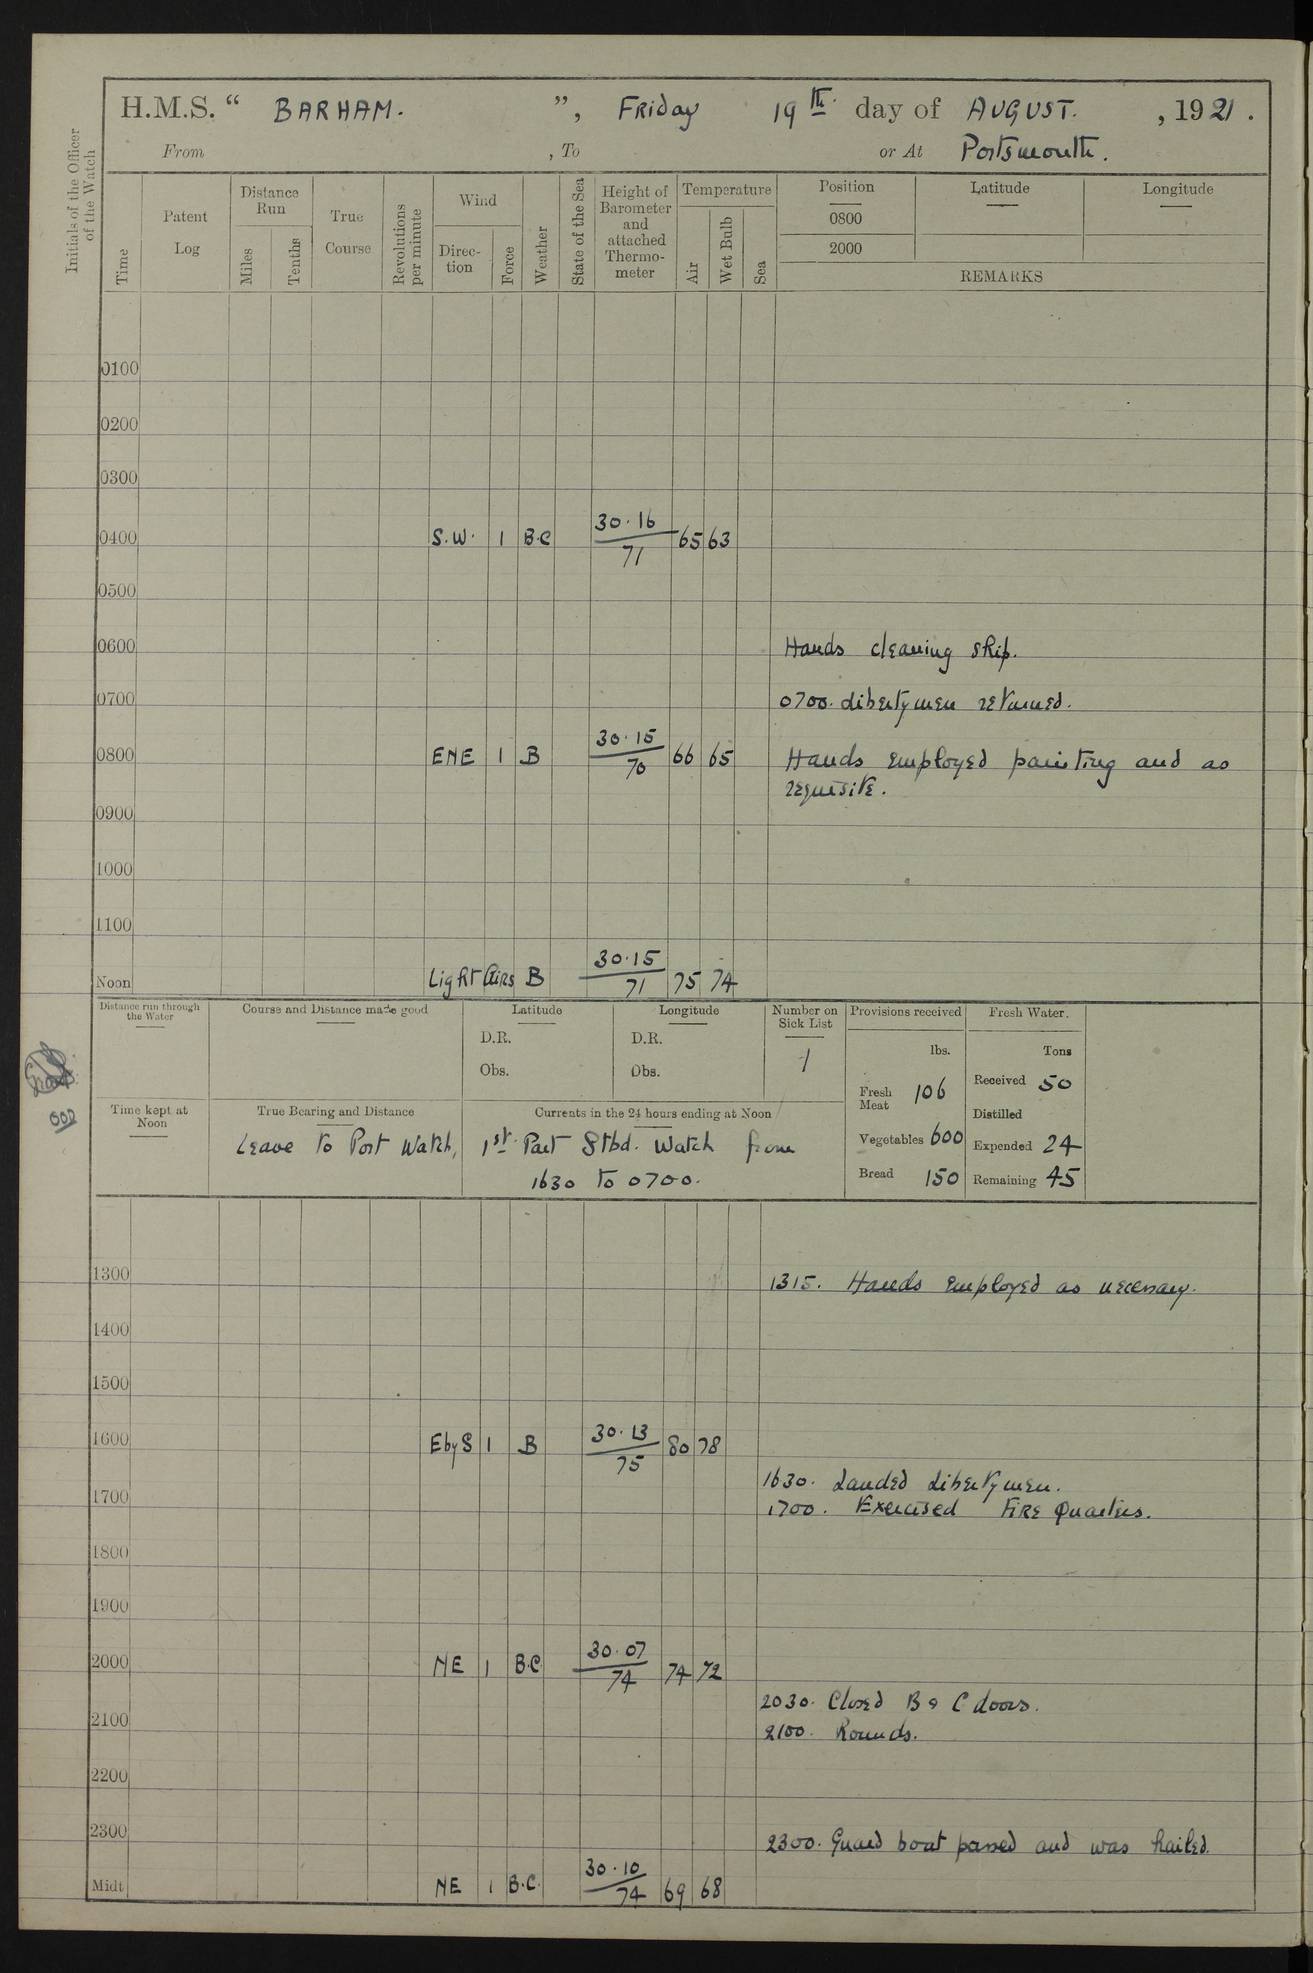 H.M.S. “ BARHAM. ”, Friday 19th. day of AUGUST. , 1921 .
From , To or At Portsmouth.
Initials of the Officer of the Watch
Time
Patent Log
Distance Run
Miles
Tenths
True Course
Revolutions per minute
Wind
Direction
Force
Weather
State of the Sea
Height of Barometer and attached Thermometer
Temperature
Air
Wet Bulb
Sea
Position Latitude Longitude
0800
2000
REMARKS
0100
0200
0300
0400 S.W. 1 B.C 30.16/71 65 63
0500
0600 Hands cleaning ship.
0700 0700. Libertymen returned.
0800 ENE 1 B 30.15/70 66 65 Hands employed painting and as
requisite.
0900
1000
1100
Noon Light Airs B 30.15/71 75 74
Distance run through the Water
Course and Distance made good
Latitude
D.R.
Obs.
Longitude
D.R.
Obs.
Number on Sick List
1
Provisions received
lbs.
Fresh Meat 106
Vegetables 600
Bread 150
Fresh Water.
Tons
Received 50
Distilled
Expended 24
Remaining 45
Time kept at Noon
True Bearing and Distance
Currents in the 24 hours ending at Noon
Leave to Port Watch, 1st. Part Stbd. Watch from
1630 to 0700.
1300 1315. Hands employed as necessary.
1400
1500
1600 EbyS 1 B 30.13/75 80 78
1630. Landed Libertymen.
1700 1700. Exercised Fire Quarters.
1800
1900
2000 NE 1 B.C 30.07/74 74 72
2030. Closed B & C doors.
2100 2100. Rounds.
2200
2300 2300. Guard boat passed and was hailed.
Midt NE 1 B.C. 30.10/74 69 68